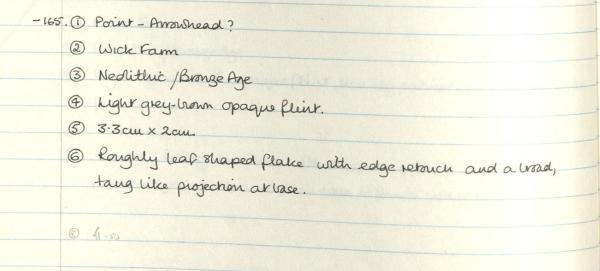 -165. ① Point - Arrowhead?
② Wick Farm
③ Neolithic / Bronze Age
④ Light grey-brown opaque flint.
⑤ 3.3cm x 2cm.
⑥ Roughly leaf shaped flake with edge retouch and a broad,
tang like projection at base.
⑧